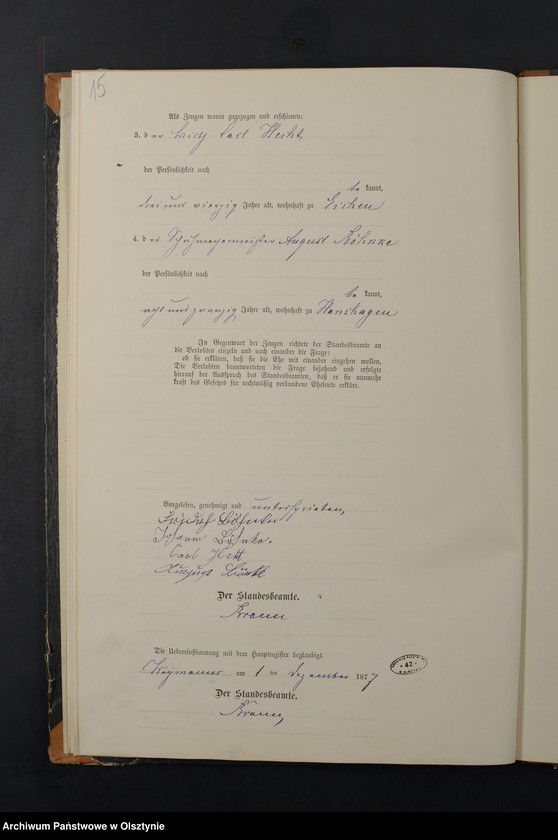 15
Als Zeugen waren zugezogen und erschienen:
3. der Wirth Carl
der Persönlichkeit nach
be kannt,
drei und vierzig Jahre alt, wohnhaft zu Eichen
4. der Schuhmachermeister August Böhnke
der Persönlichkeit nach
be kannt,
acht und zwanzig Jahre alt, wohnhaft zu Hanshagen
In Gegenwart der Zeugen richtete der Standesbeamte an
die Verlobten einzeln und nach einander die Frage:
ob sie erklären, daß sie die Ehe mit einander eingehen wollen.
Die Verlobten beantworteten die Frage bejahend und erfolgte
hierauf der Ausspruch des Standesbeamten, daß er sie nunmehr
kraft des Gesetzes für rechtmäßig verbundene Eheleute erkläre.
Vorgelesen, genehmigt und unterschrieben,
Friedrich Böhnke
Johann Böhnke.
Carl
August
Der Standesbeamte.
Die Uebereinstimmung mit dem Hauptregister beglaubigt.
am 1 ten Dezember 1877
42
Der Standesbeamte.
Archiwum Państwowe w Olsztynie